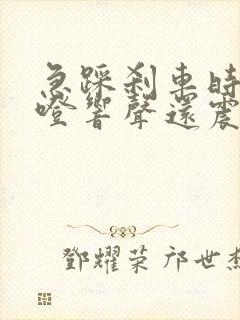 急踩刹車時
噔響聲還震
鄧耀荣 邝世杰